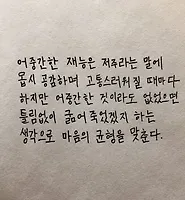 어중간한 재능은 저주라는 말에
몹시 공감하며 고통스러워질 때마다
하지만 어중간한 것이라도 없었으면
틀림없이 굶어 죽었겠지 하는
생각으로 마음의 균형을 맞춘다.